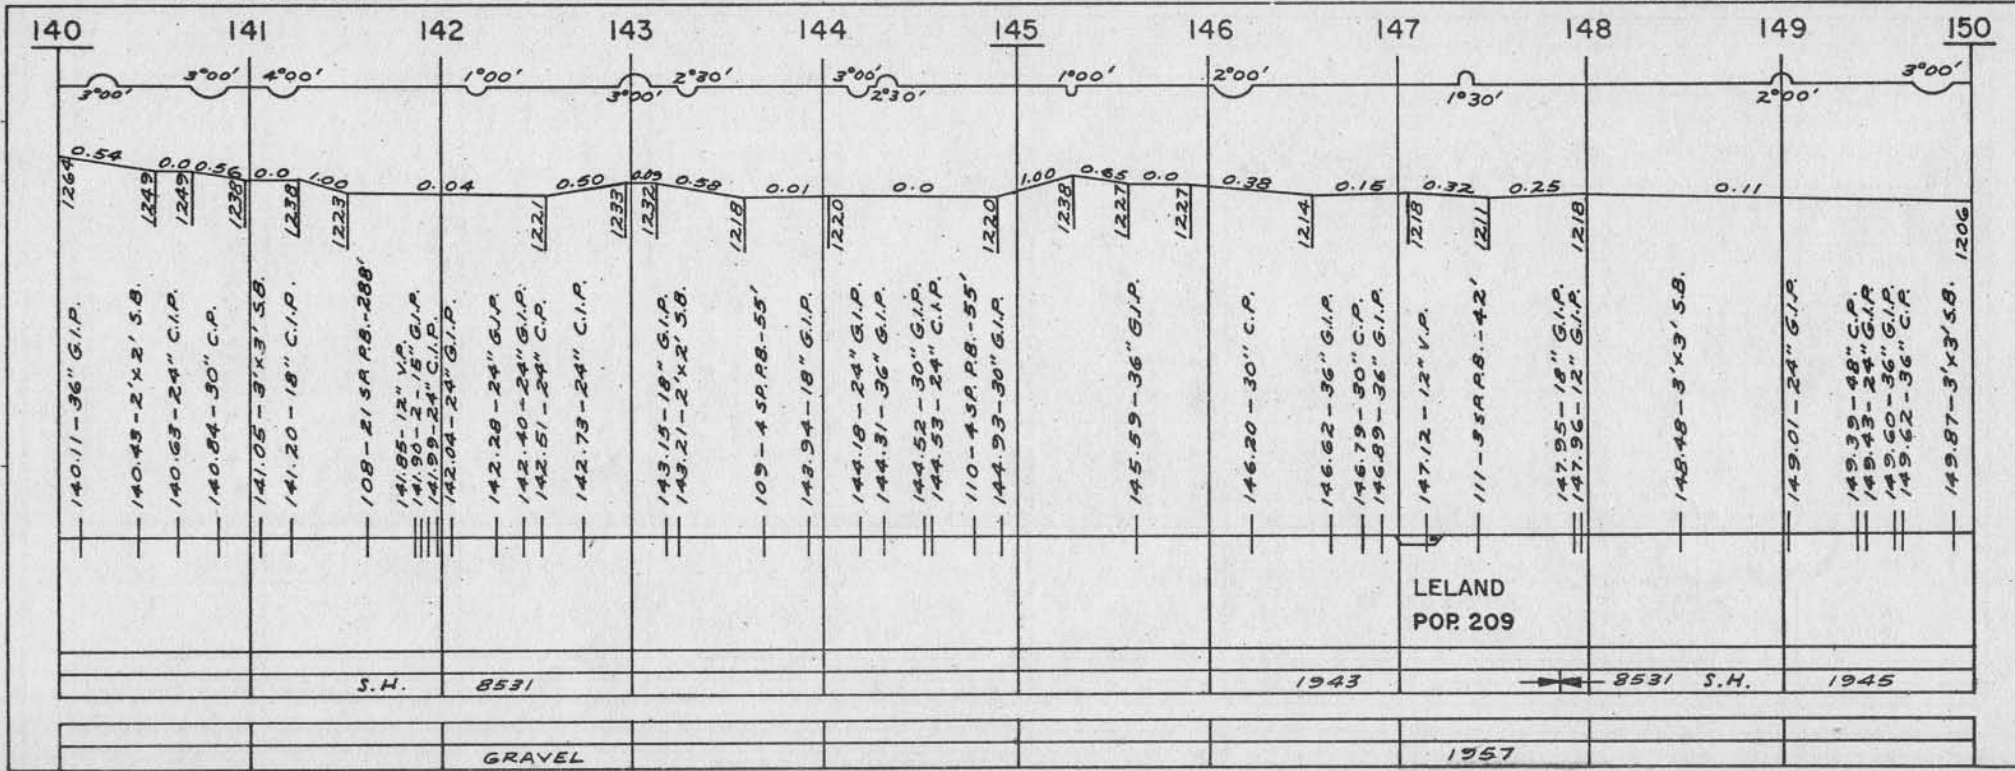 140 141 142 143 144 145 146 147 148 149 150
3°00' 4°00' 1°00' 2°30' 3°00' 1°00' 2°00' 3°00'
3°00' 3°00' 2°30' 1°30' 2°00'
0.54 0.0 0.56 0.0 1.00 0.04 0.50 0.09 0.58 0.01 0.0 1.00 0.65 0.0 0.38 0.15 0.32 0.25 0.11
1264 1249 1249 1238 1238 1223 1221 1233 1232 1218 1220 1220 1238 1227 1227 1214 1218 1211 1218 1206
140.11-36" G.I.P.
140.43-2'x2' S.B.
140.63-24" C.I.P.
140.84-30" C.P.
141.05-3'x3' S.B.
141.20-18" C.I.P.
108-21 SP. P.B.-288'
141.85-12" V.P.
141.90-2-15" G.I.P.
141.99-24" C.I.P.
142.04-24" G.I.P.
142.28-24" G.I.P.
142.40-24" G.I.P.
142.51-24" C.P.
142.73-24" C.I.P.
143.15-18" G.I.P.
143.21-2'x2' S.B.
109-4 SP. P.B.-55'
143.94-18" G.I.P.
144.18-24" G.I.P.
144.31-36" G.I.P.
144.52-30" G.I.P.
144.53-24" C.I.P.
110-4 SP. P.B.-55'
144.93-30" G.I.P.
145.59-36" G.I.P.
146.20-30" C.P.
146.62-36" G.I.P.
146.79-30" C.P.
146.89-36" G.I.P.
147.12-12" V.P.
111-3 SP. P.B.-42'
147.95-18" G.I.P.
147.96-12" G.I.P.
148.48-3'x3' S.B.
149.01-24" G.I.P.
149.39-48" C.P.
149.43-24" G.I.P.
149.60-36" G.I.P.
149.62-36" C.P.
149.87-3'x3' S.B.
LELAND
POP. 209
S.H. 8531 1943 8531 S.H. 1945
GRAVEL 1957